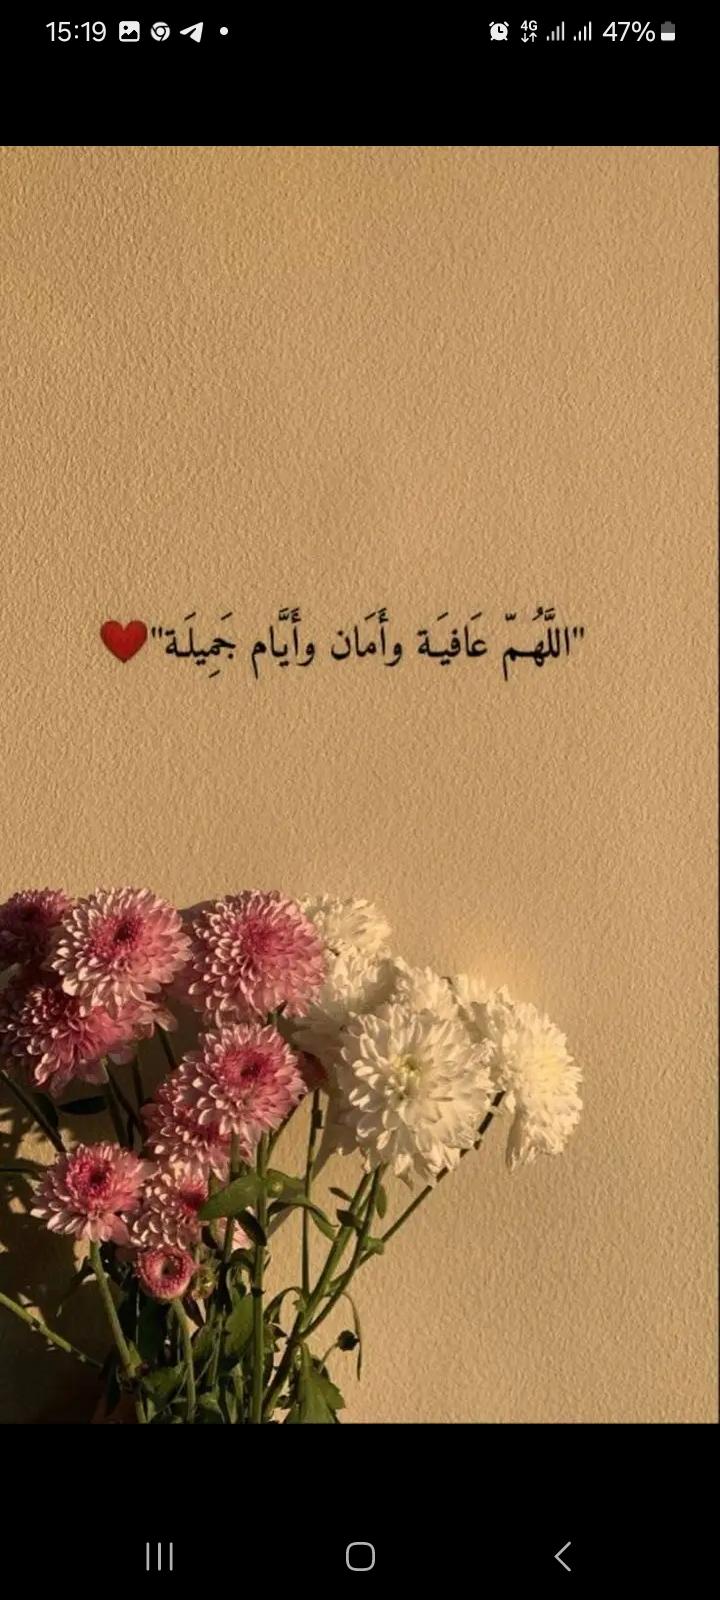 15:19 4G 47%
"اللَّهُمّ عَافيَة وأَمَان وأَيَّام جَمِيلَة"❤️